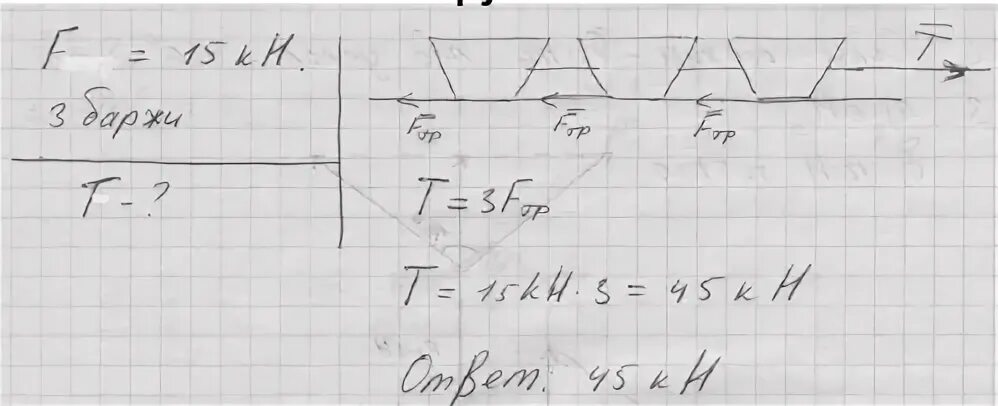 F = 15 кН.
3 баржи
T - ?
T
Fтр Fтр Fтр
T = 3Fтр
T = 15кН · 3 = 45 кН
Ответ: 45 кН